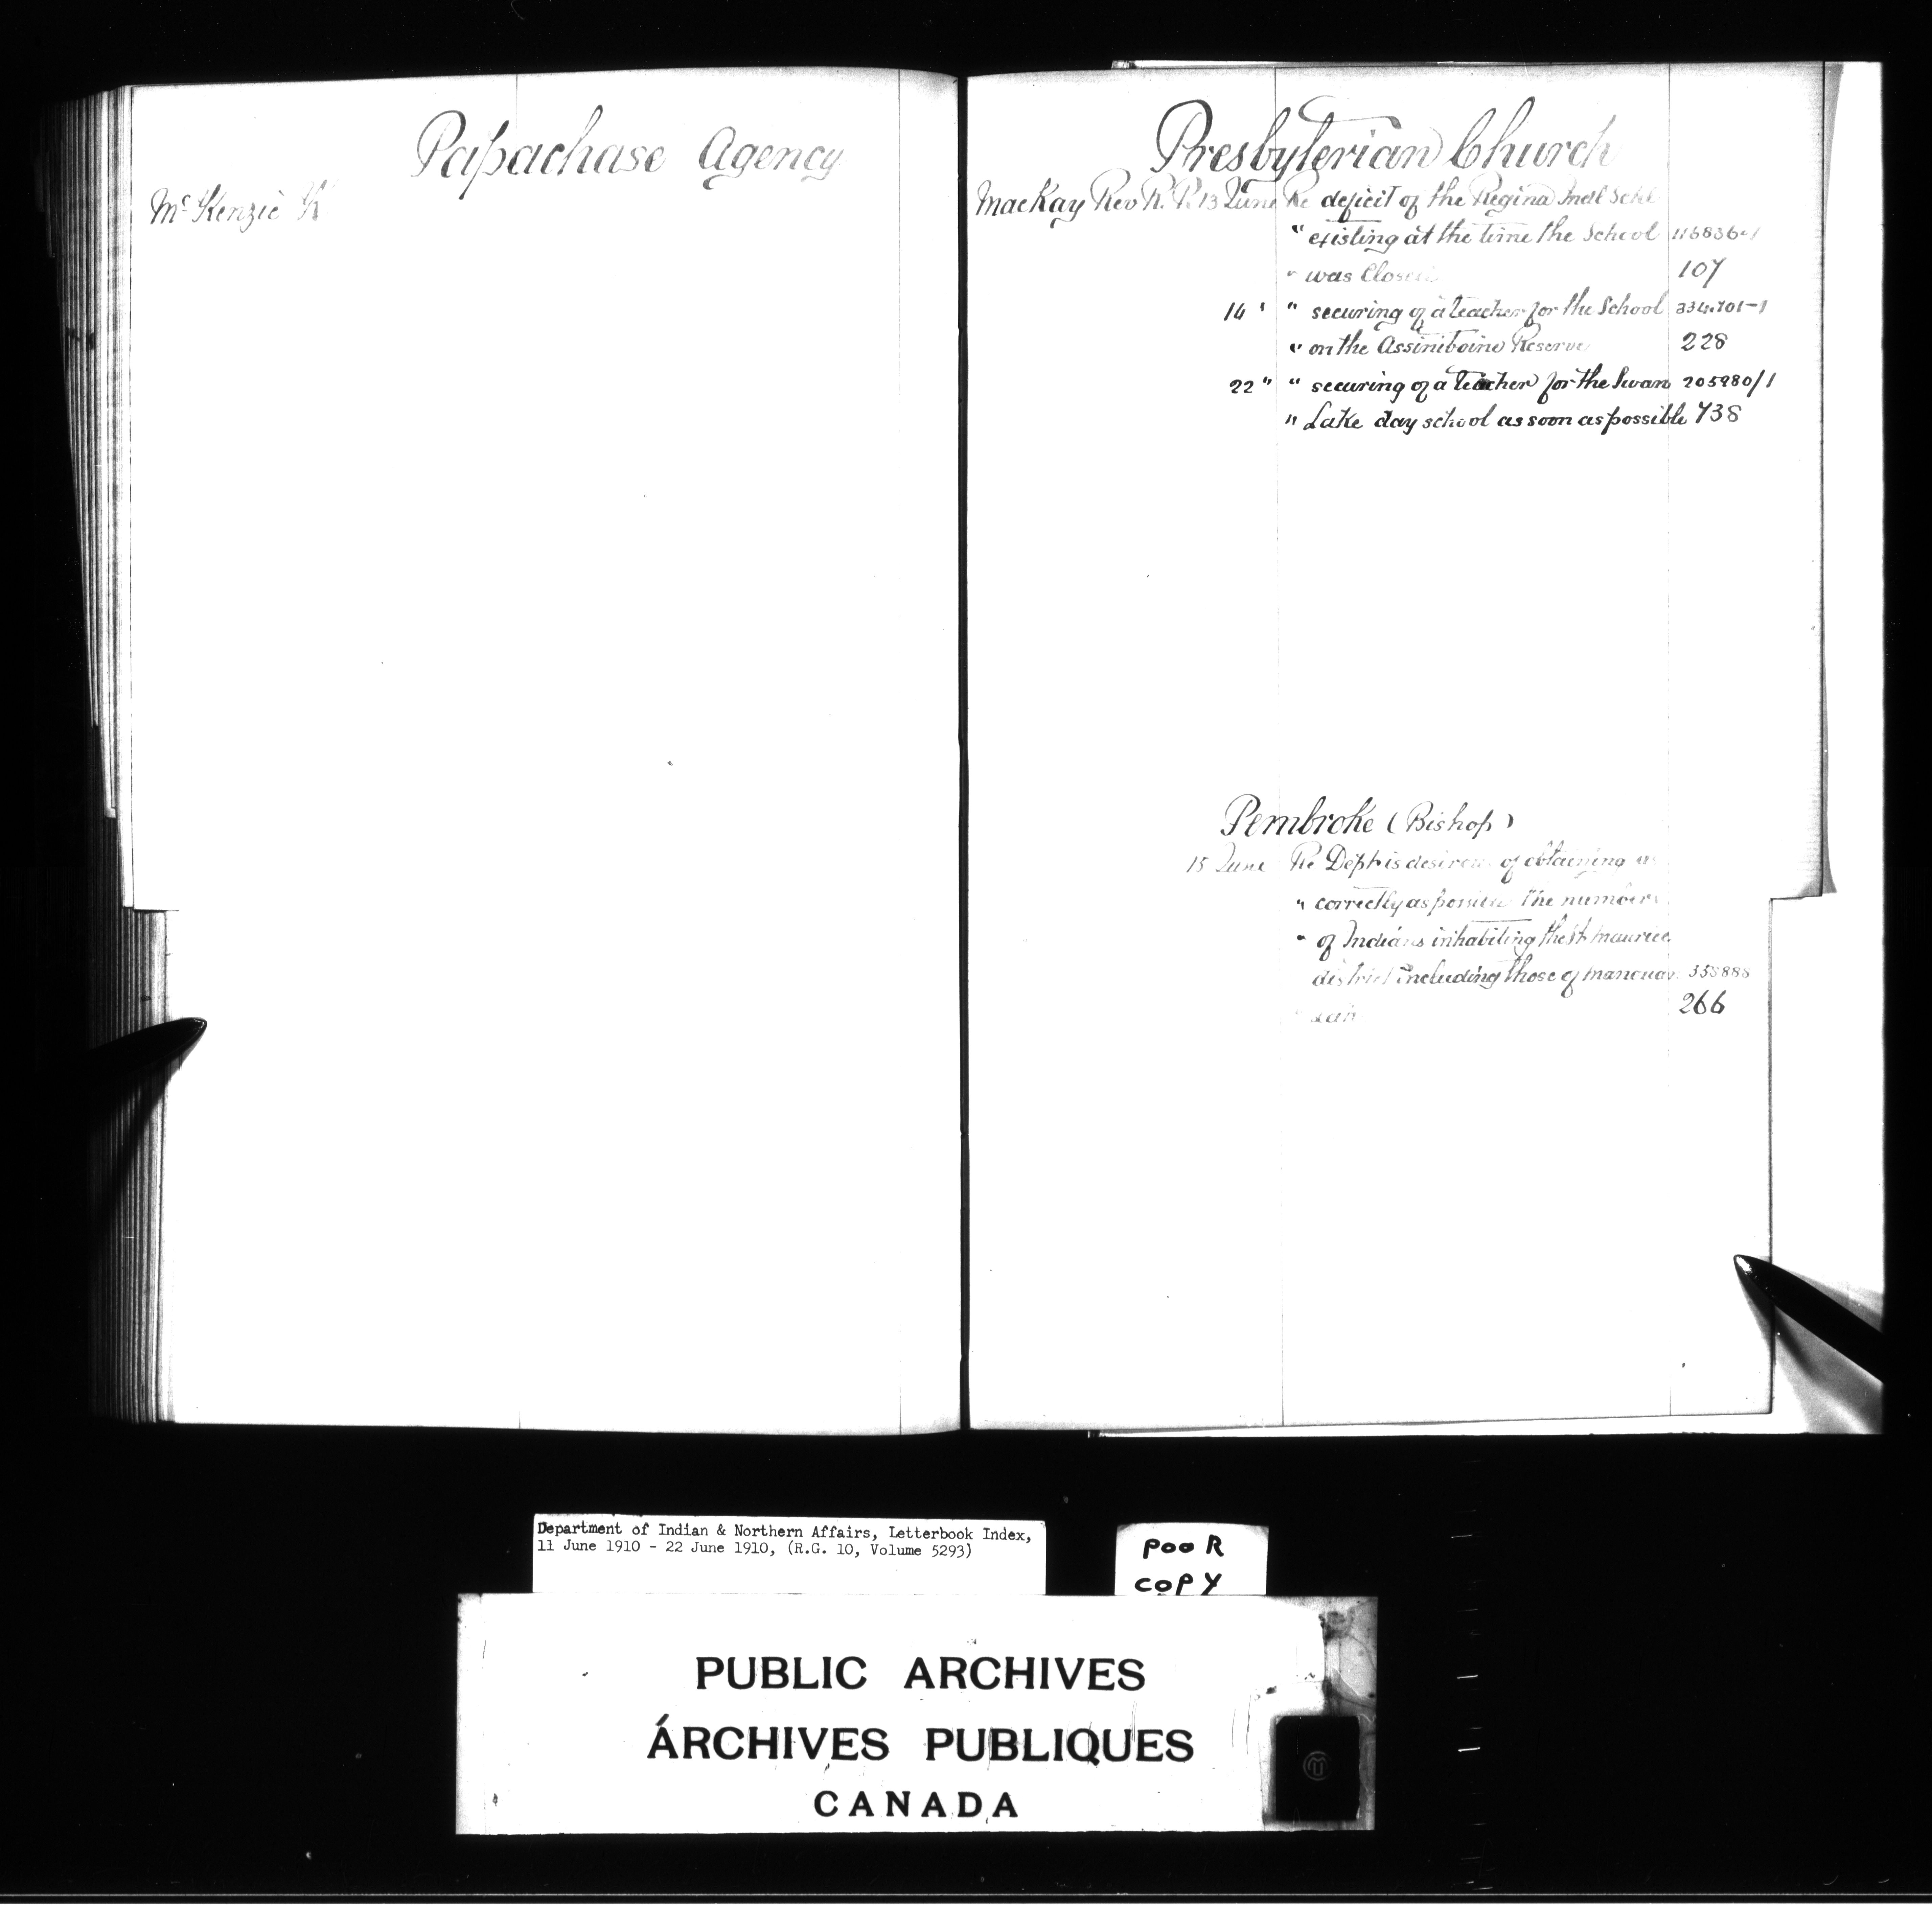 Papachase Agency
McKenzie K
Presbyterian Church
MacKay Rev R. P. 13 June Re deficit of the Regina Indl Schl
" existing at the time the School 116836-1
" was Closed 107
14 " " securing of a teacher for the School 334701-1
" on the Assiniboine Reserve 228
22 " " securing of a teacher for the Swan 205980/1
" Lake day school as soon as possible 738
Pembroke (Bishop)
15 June Re Dept is desirous of obtaining as
" correctly as possible the number
" of Indians inhabiting the St Maurice
district including those of Manouan 358888
266
Department of Indian & Northern Affairs, Letterbook Index,
11 June 1910 - 22 June 1910, (R.G. 10, Volume 5293)
POOR
COPY
PUBLIC ARCHIVES
ÁRCHIVES PUBLIQUES
CANADA